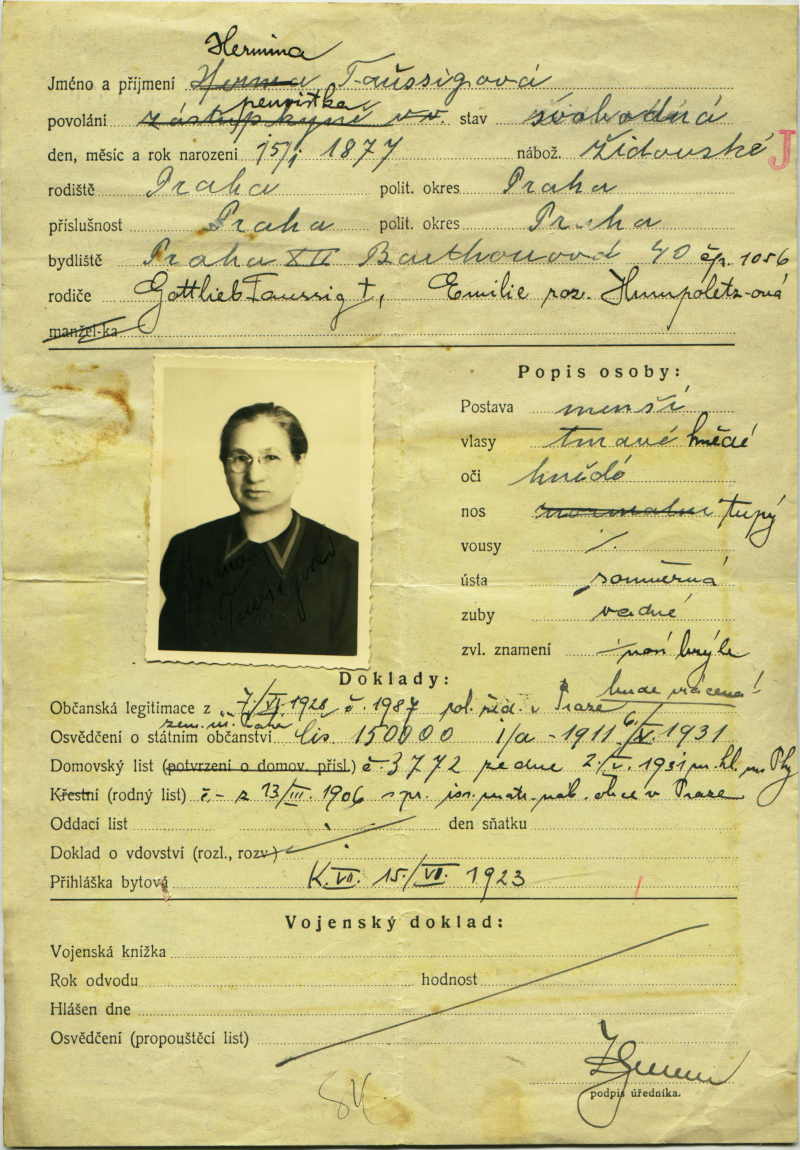 Hermina
Jméno a příjmení Herma Taussigová
penzistka
povolání zástupkyně v.v. stav svobodná
den, měsíc a rok narození 15/I 1877 nábož. židovské J
rodiště Praha polit. okres Praha
příslušnost Praha polit. okres Praha
bydliště Praha XII Barthouova 40 čp. 1056
rodiče Gottlieb Taussig †, Emilie roz. Humpoletz-ová
manžel-ka
Popis osoby:
Postava menší
vlasy tmavé hnědé
oči hnědé
nos normální tupý
vousy
ústa souměrná
zuby vadné
zvl. znamení nosí brýle
Taussigová
Doklady:
bude vrácena!
Občanská legitimace z 7/VI. 1928 č. 1987 pol. řed. v Praze
zem. úř.
Osvědčení o státním občanství čís. 150000 1/a - 1911 6/V. 1931
Domovský list (potvrzení o domov. přísl.) č. 3772 ze dne 2./V. 1931 m. hl. m. Phy
Křestní (rodný list) č. - z 13/III. 1906 spr. isr. matr. náb. obce v Praze
Oddací list den sňatku
Doklad o vdovství (rozl., rozv)
Přihláška bytová K. VII. 15./VII. 1923
Vojenský doklad:
Vojenská knížka
Rok odvodu hodnost
Hlášen dne
Osvědčení (propouštěcí list)
podpis úředníka.